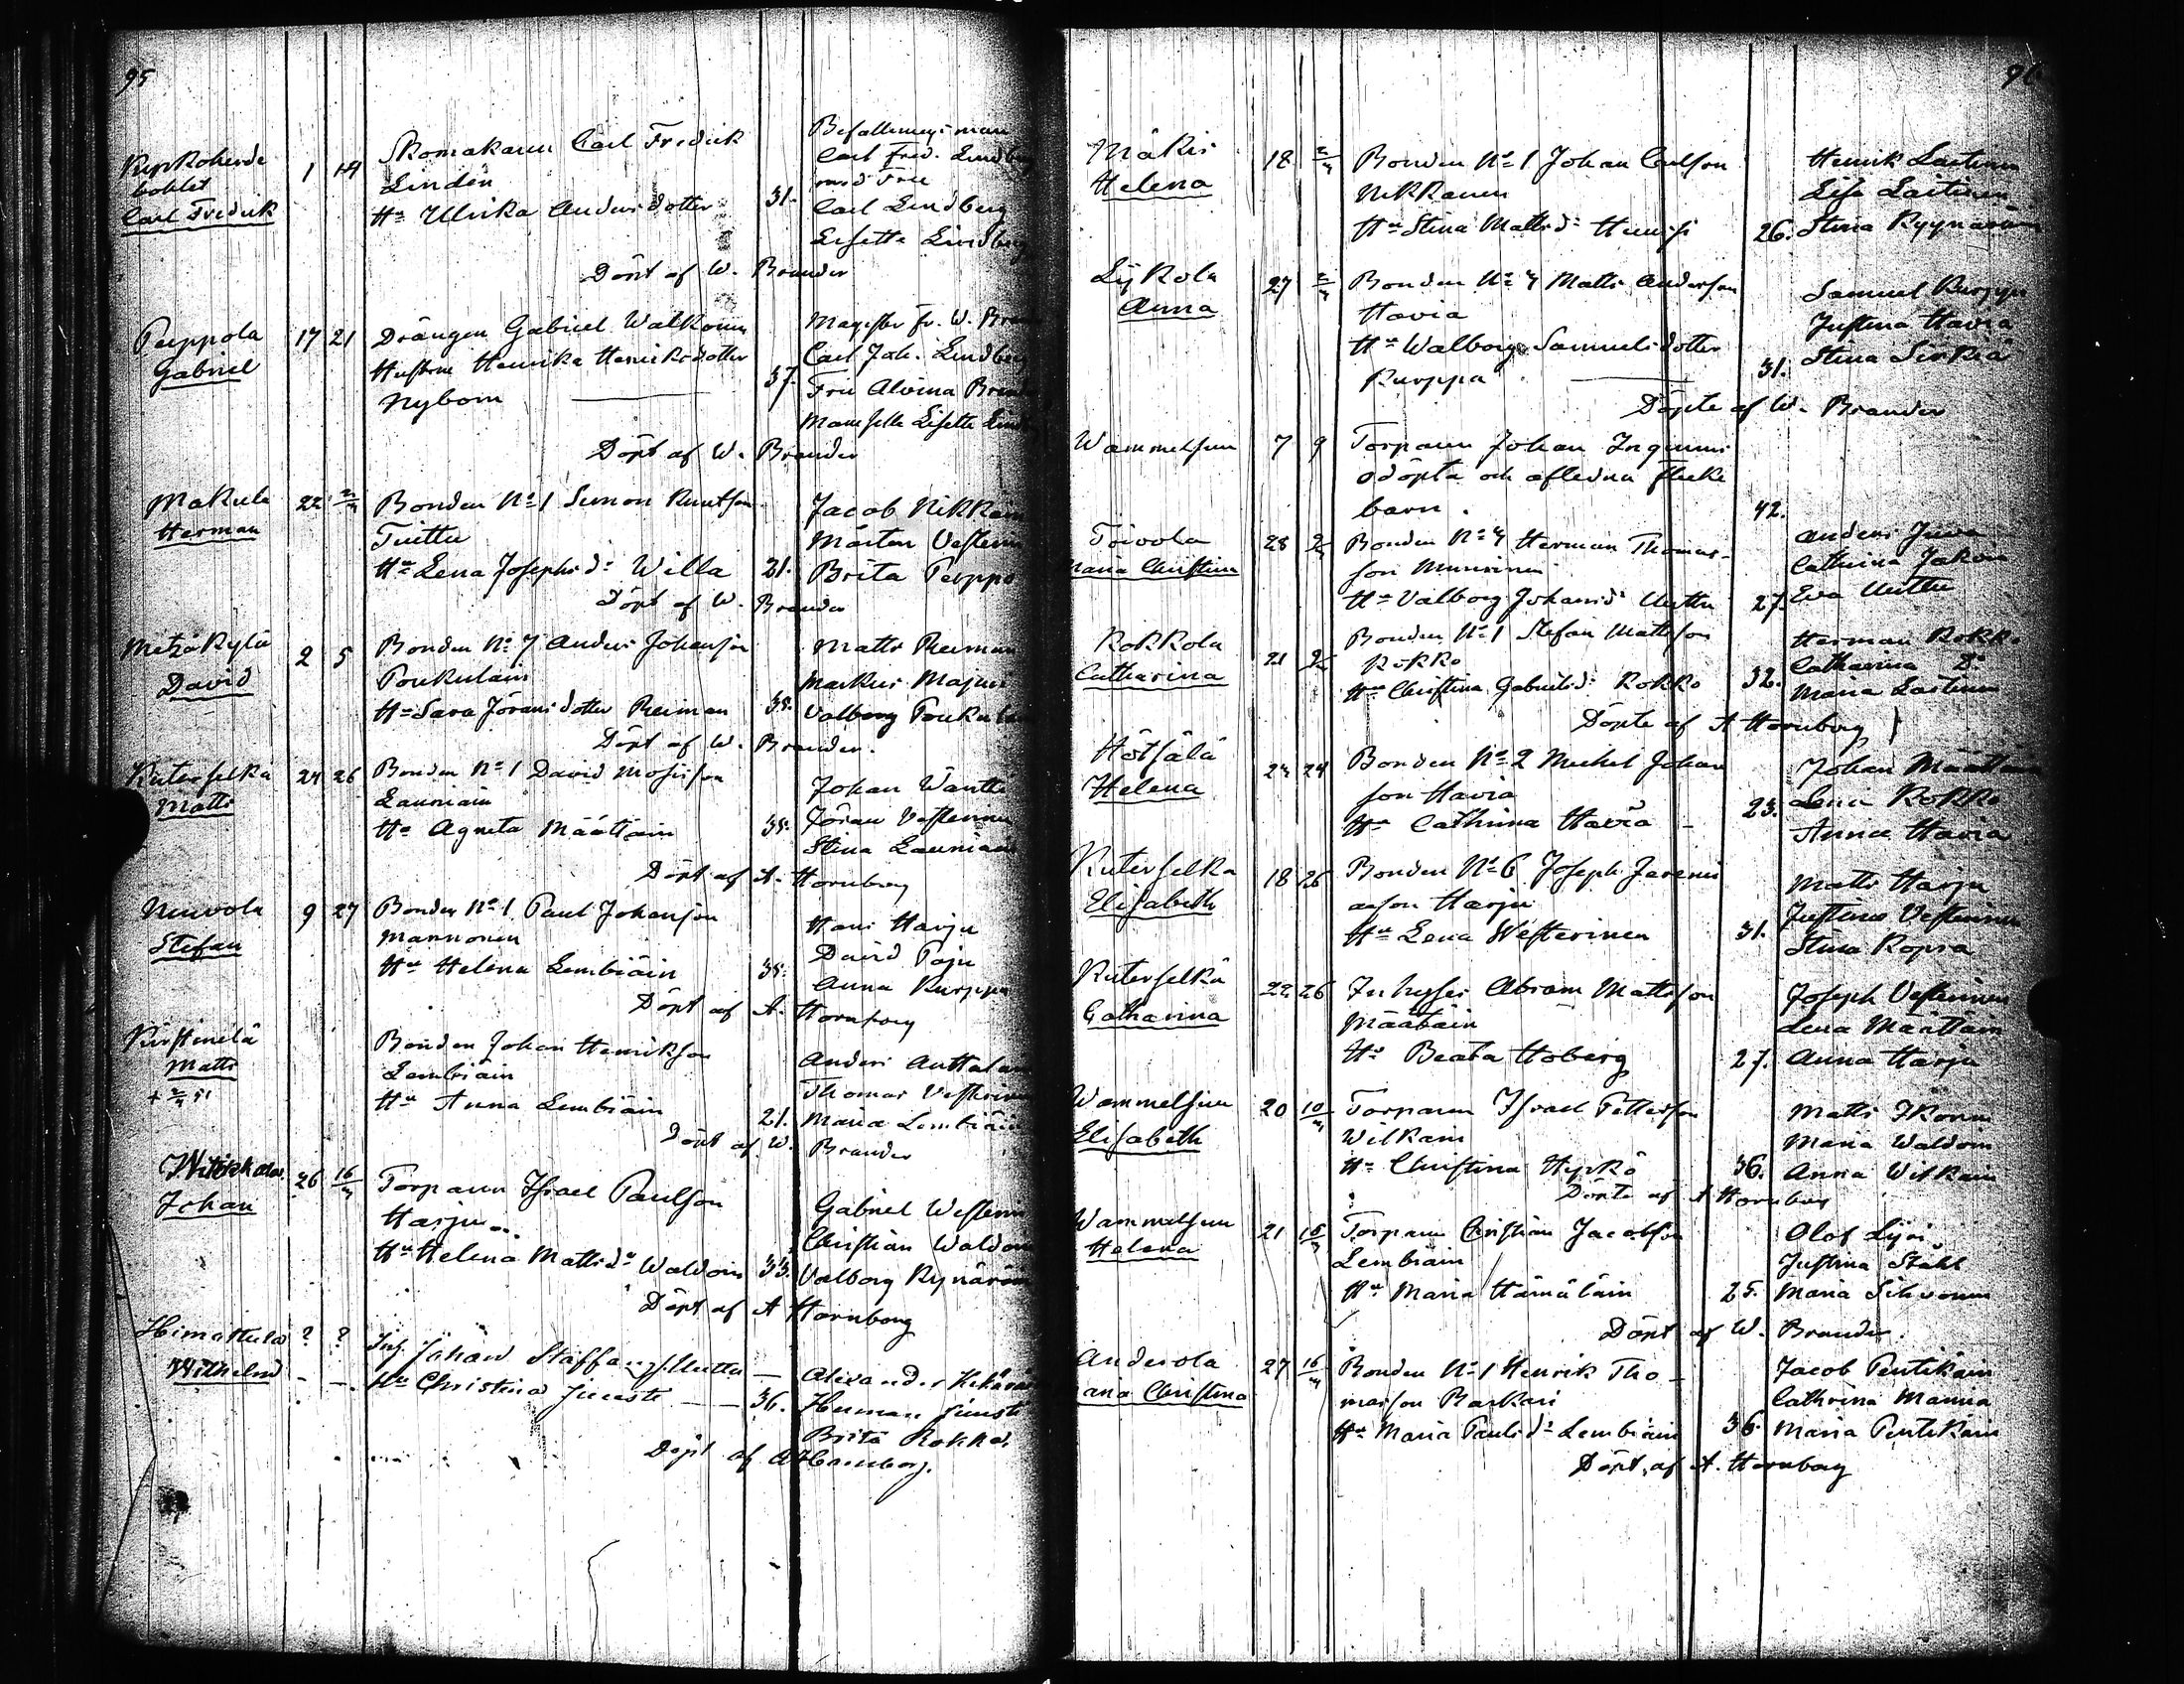 95
Bokelet
Carl Fredrik
1 14
Skomakaren Carl Fredrik
Linden
Hu Ulrika Andersdotter
31.
Befallningsman
Carl Fred. Lindberg
med Fru
Carl Lindberg
Lisette Lindberg
Döpt af W. Brander
Peippola
Gabriel
17 21
Drängen Gabriel Walkonen
Hustrun Henrika Henriksdotter
Nybom
37.
Magister Fr. W. Bran
Carl Joh. Lindberg
Fru Alvina Brander
Mamselle Lisette Lind
Döpt af W. Brander
Makula
Herman
22 2/4
Bonden No 1 Simon Knutson
Tuittu
Hu Lena Josephsd: Willa
21.
Jacob Nikkain
Mårten Vesterin
Brita Peippo
Döpt af W. Brander
Metzäkylä
David
2 5
Bonden No 7 Anders Johanson
Poukulain
Hu Sara Göransdotter Reiman
38.
Matts Reiman
Markus Majuri
Valborg Poukulain
Döpt af W. Brander.
Kuterselkä
Matts
24 26
Bonden No 1 David Mosisson
Launiain
Hu Agneta Määttäin
35.
Johan Wantti
Jöran Vesterinen
Stina Launiain
Döpt af A. Hornborg
Neuvola
Stefan
9 27
Bonden No 1 Paul Johanson
Mannonen
Hu Helena Lembiäin
35.
Hans Harju
David Paju
Anna Kurppa
Döpt af A. Hornborg
Kirstinälä
Matts
Bonden Johan Henrikson
Lembiäin
Hu Anna Lembiäin
21.
Anders Anttalain
Thomas Vesterinen
Maria Lembiäin
Döpt af W. Brander
Johan
26 16/4
Torparen Israel Paulson
Harju
Hu Helena Mattsdr Waldoin
33.
Gabriel Westerin
Christian Waldoin
Valborg Rynänen
Döpt af A Hornborg
Himottula
Wilhelm
? ?
Inh. Johan Staffanss. Uuttu
Hu Christina Juusti
36.
Alexander Kekäräin
Herman Juusti
Brita Rokka
Döpt af A Hornborg.
96
Mäkis
Helena
18 2/4
Bonden No 1 Johan Carlson
Nikkanen
Hu Stina Mattsd: Hennisi
26.
Henrik Laitinen
Lisa Laitinen
Stina Ryynänen
Lijkola
Anna
27 2/4
Bonden No 4 Matts Anderson
Havia
Hu Walborg Samuelsdotter
Kurppa
31.
Samuel Kurppa
Justina Havia
Stina Sirkiä
Döpte af W. Brander
Wammelsuu
7 9
Torparen Johan Inquinus
odöpta och aflidna flicke
barn.
42.
Toivola
Maria Christina
28 2/4
Bonden No 4 Herman Thomas-
son Mururinen
Hu Valborg Johansd: Uuttu
27.
Anders Juva
Cathrina
Eva Uuttu
Rokkola
Catharina
21 2/4
Bonden No 1 Stefan Mattsson
Rokko
Hu Christina Gabrielsd: Rokko
32.
Herman Rokko
Catharina Do
Maria Laitinen
Döpte af A Hornborg
Hötsölä
Helena
24 24
Bonden No 2 Michel Johan
son Havia
Hu Cathrina Havia
23.
Johan Määttäin
Lena Rokko
Anna Havia
Kuterselka
Elisabeth
18 26
Bonden No 6 Joseph Jeremi
asson Harju
Hu Lena Westerinen
31.
Matts Harju
Justina Vesterinen
Stina Kopra
Kuterselkä
Catharina
22 26
Inhyses Abram Mattsson
Määtäin
Hu Beata Hoberg
27.
Joseph Vesterinen
Lena Määttäin
Anna Harju
Wammelsuu
Elisabeth
20 10/4
Torparen Israel Petterson
Wilkain
Hu Christina Hypkö
36.
Matts Ikonen
Maria Waldoin
Anna Wilkain
Döpte af A Hornborg
Wammelsuu
Helena
21 15/4
Torparen Christian Jacobson
Lembiain
Hu Maria Hämäläin
25.
Olof Lijri
Justina Ståhl
Maria Sihvonen
Döpt af W. Brander.
Anderola
Maria Christina
27 16/4
Bonden No 1 Henrik Tho-
masson Raskari
Hu Maria Paulsd: Lembiäin
36.
Jacob Pentikäin
Cathrina Mannia
Maria Pentikäin
Döpt af A. Hornborg